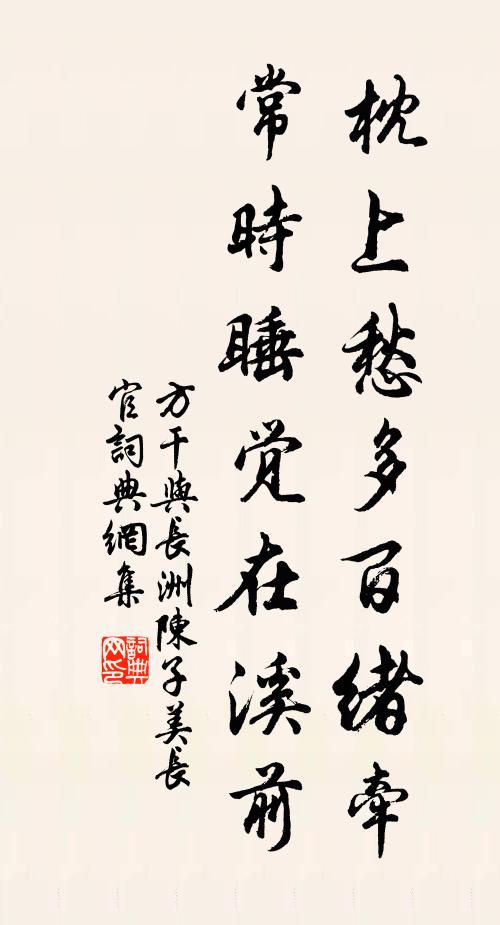 枕上愁多百緒牽
常時睡觉在溪前
方干與長洲陳子美長
官詞典網集
詞典网印